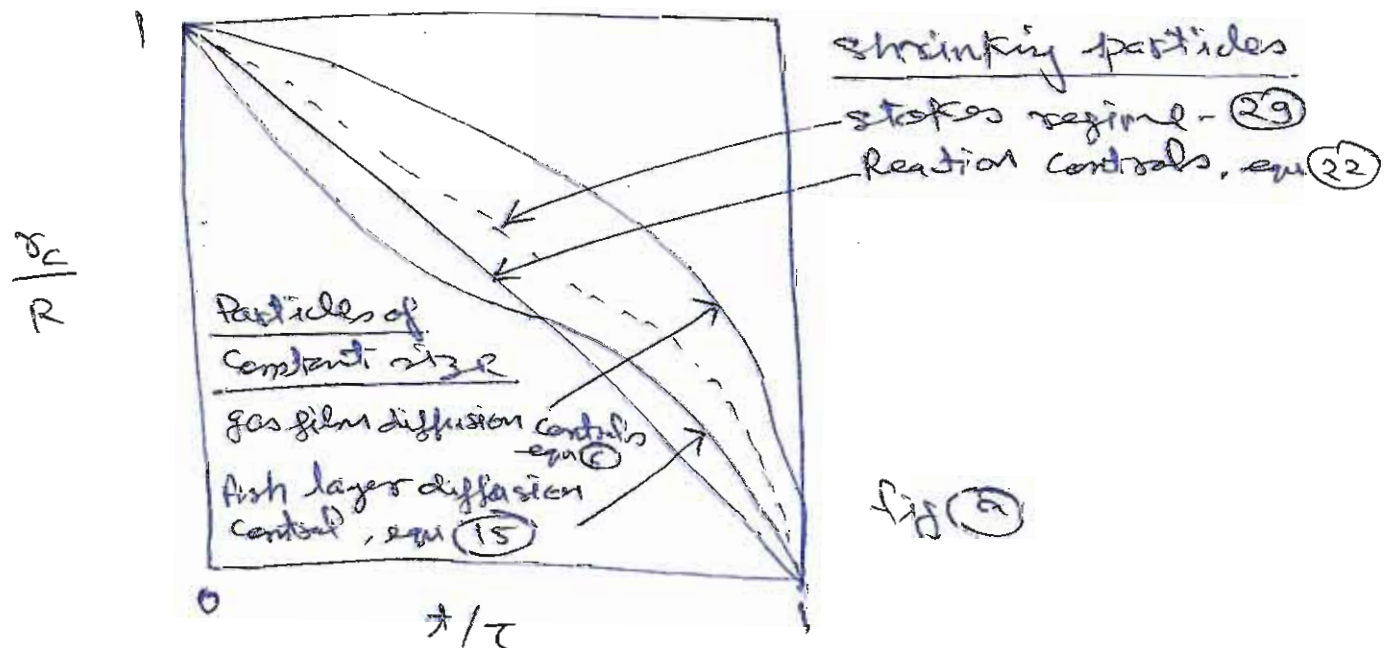 1
shrinking particles
stokes regime - 29
Reaction controls, equ 22
r_c
R
Particles of
Constant size
gas film diffusion controls
equ
Ash layer diffusion
Control, equ 15
fig
0
t/τ
1